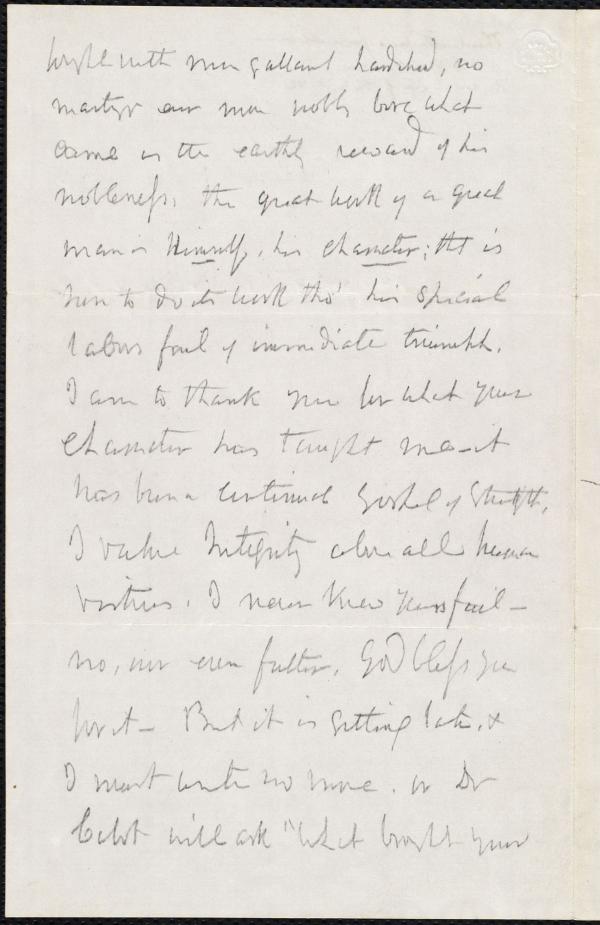 fought with more gallant hardihood, no
martyr ever more nobly bore what
came as the earthly reward of his
nobleness. the great work of a great
man is Himself, his character; tht is
sure to do its work tho' his special
labors fail of immediate triumph.
I am to thank you for what your
character has taught me—it
has been a continual Gospel of Strength.
I value Integrity above all human
virtues. I never knew yours fail—
no, nor even falter. God bless you
for it— But it is getting late, &
I must write no more. or Dr
Cabot will ask "What brought your